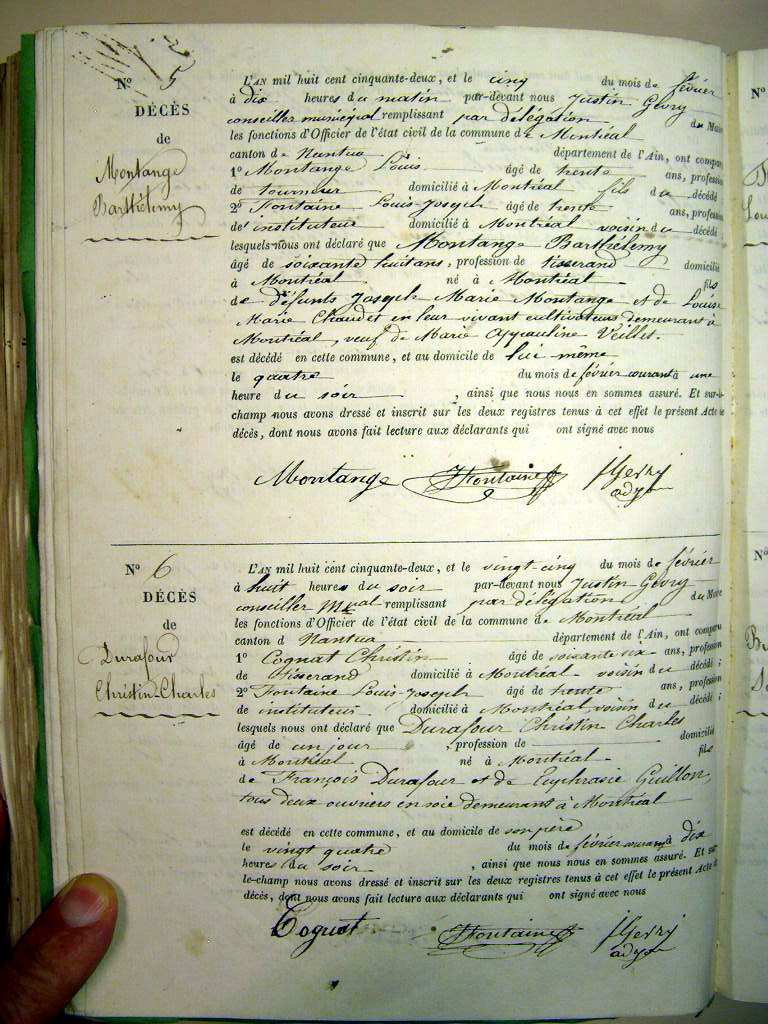 N° 5
DÉCÈS
de
Montange
Barthélemy
L'AN mil huit cent cinquante-deux, et le cinq du mois de février
à dix heures du matin par-devant nous Justin Gevry
conseiller municipal remplissant par délégation du Maire
les fonctions d'Officier de l'état civil de la commune de Montréal
canton de Nantua département de l'Ain, ont compa
1° Montange Louis âgé de trente ans, profession
de tourneur domicilié à Montréal fils du décédé
2° Fontaine Louis-Joseph âgé de trente ans, profes
de instituteur domicilié à Montréal voisin du décédé
lesquels nous ont déclaré que Montange Barthélemy
âgé de soixante huit ans, profession de tisserand domicilié
à Montréal né à Montréal fils
de défunts Joseph Marie Montange et de Louise
Marie Chaudet en leur vivant cultivateurs demeurant à
Montréal, veuf de Marie Veilles.
est décédé en cette commune, et au domicile de lui même
le quatre du mois de février courant à une
heure du soir , ainsi que nous nous en sommes assuré. Et sur-le
champ nous avons dressé et inscrit sur les deux registres tenus à cet effet le présent Acte de
décès, dont nous avons fait lecture aux déclarants qui ont signé avec nous
Montange Fontaine JGevry
adj
N° 6
DÉCÈS
de
Durafour
Christin-Charles
L'AN mil huit cent cinquante-deux, et le vingt cinq du mois de février
à huit heures du soir par-devant nous Justin Gevry
conseiller mpal remplissant par délégation du Maire
les fonctions d'Officier de l'état civil de la commune de Montréal
canton d Nantua département de l'Ain, ont comparu
1° Cognat Christin âgé de soixante six ans, profession
de tisserand domicilié à Montréal voisin du décédé ;
2° Fontaine Louis-Joseph âgé de trente ans, profession
de instituteur domicilié à Montréal voisin du décédé ;
lesquels nous ont déclaré que Durafour Christin Charles
âgé de un jour , profession de domicilié
à Montréal né à Montréal fils
de François Durafour et de Euphrasie Guillon,
tous deux ouvriers en soie demeurant à Montréal
est décédé en cette commune, et au domicile de son père
le vingt quatre du mois de février courant à dix
heures du soir , ainsi que nous nous en sommes assuré. Et sur
le-champ nous avons dressé et inscrit sur les deux registres tenus à cet effet le présent Acte de
décès, dont nous avons fait lecture aux déclarants qui ont signé avec nous
Cognat Fontaine JGevry
adj